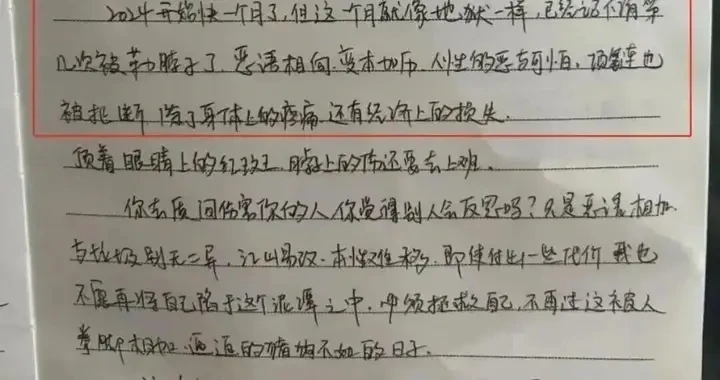 2024开始快一个月了,但这一个月就像地狱一样,已经记不清第
几次被勒脖子了,恶语相向,变本加厉,人性的恶与可怕,项链也
被扯断,除了身体上的疼痛,还有经济上的损失.
顶着眼睛上的红斑 脖上的伤还要去上班.
你去质问伤害你的人,你觉得别人会反思吗?只是恶语相加
与垃圾别无二异,江山易改,本性难移,即使付出一些代价 我也
不愿再将自己陷于这个泥潭之中,必须拯救自己,不再过这被人
拳脚相加 逼迫的猪狗不如的日子.